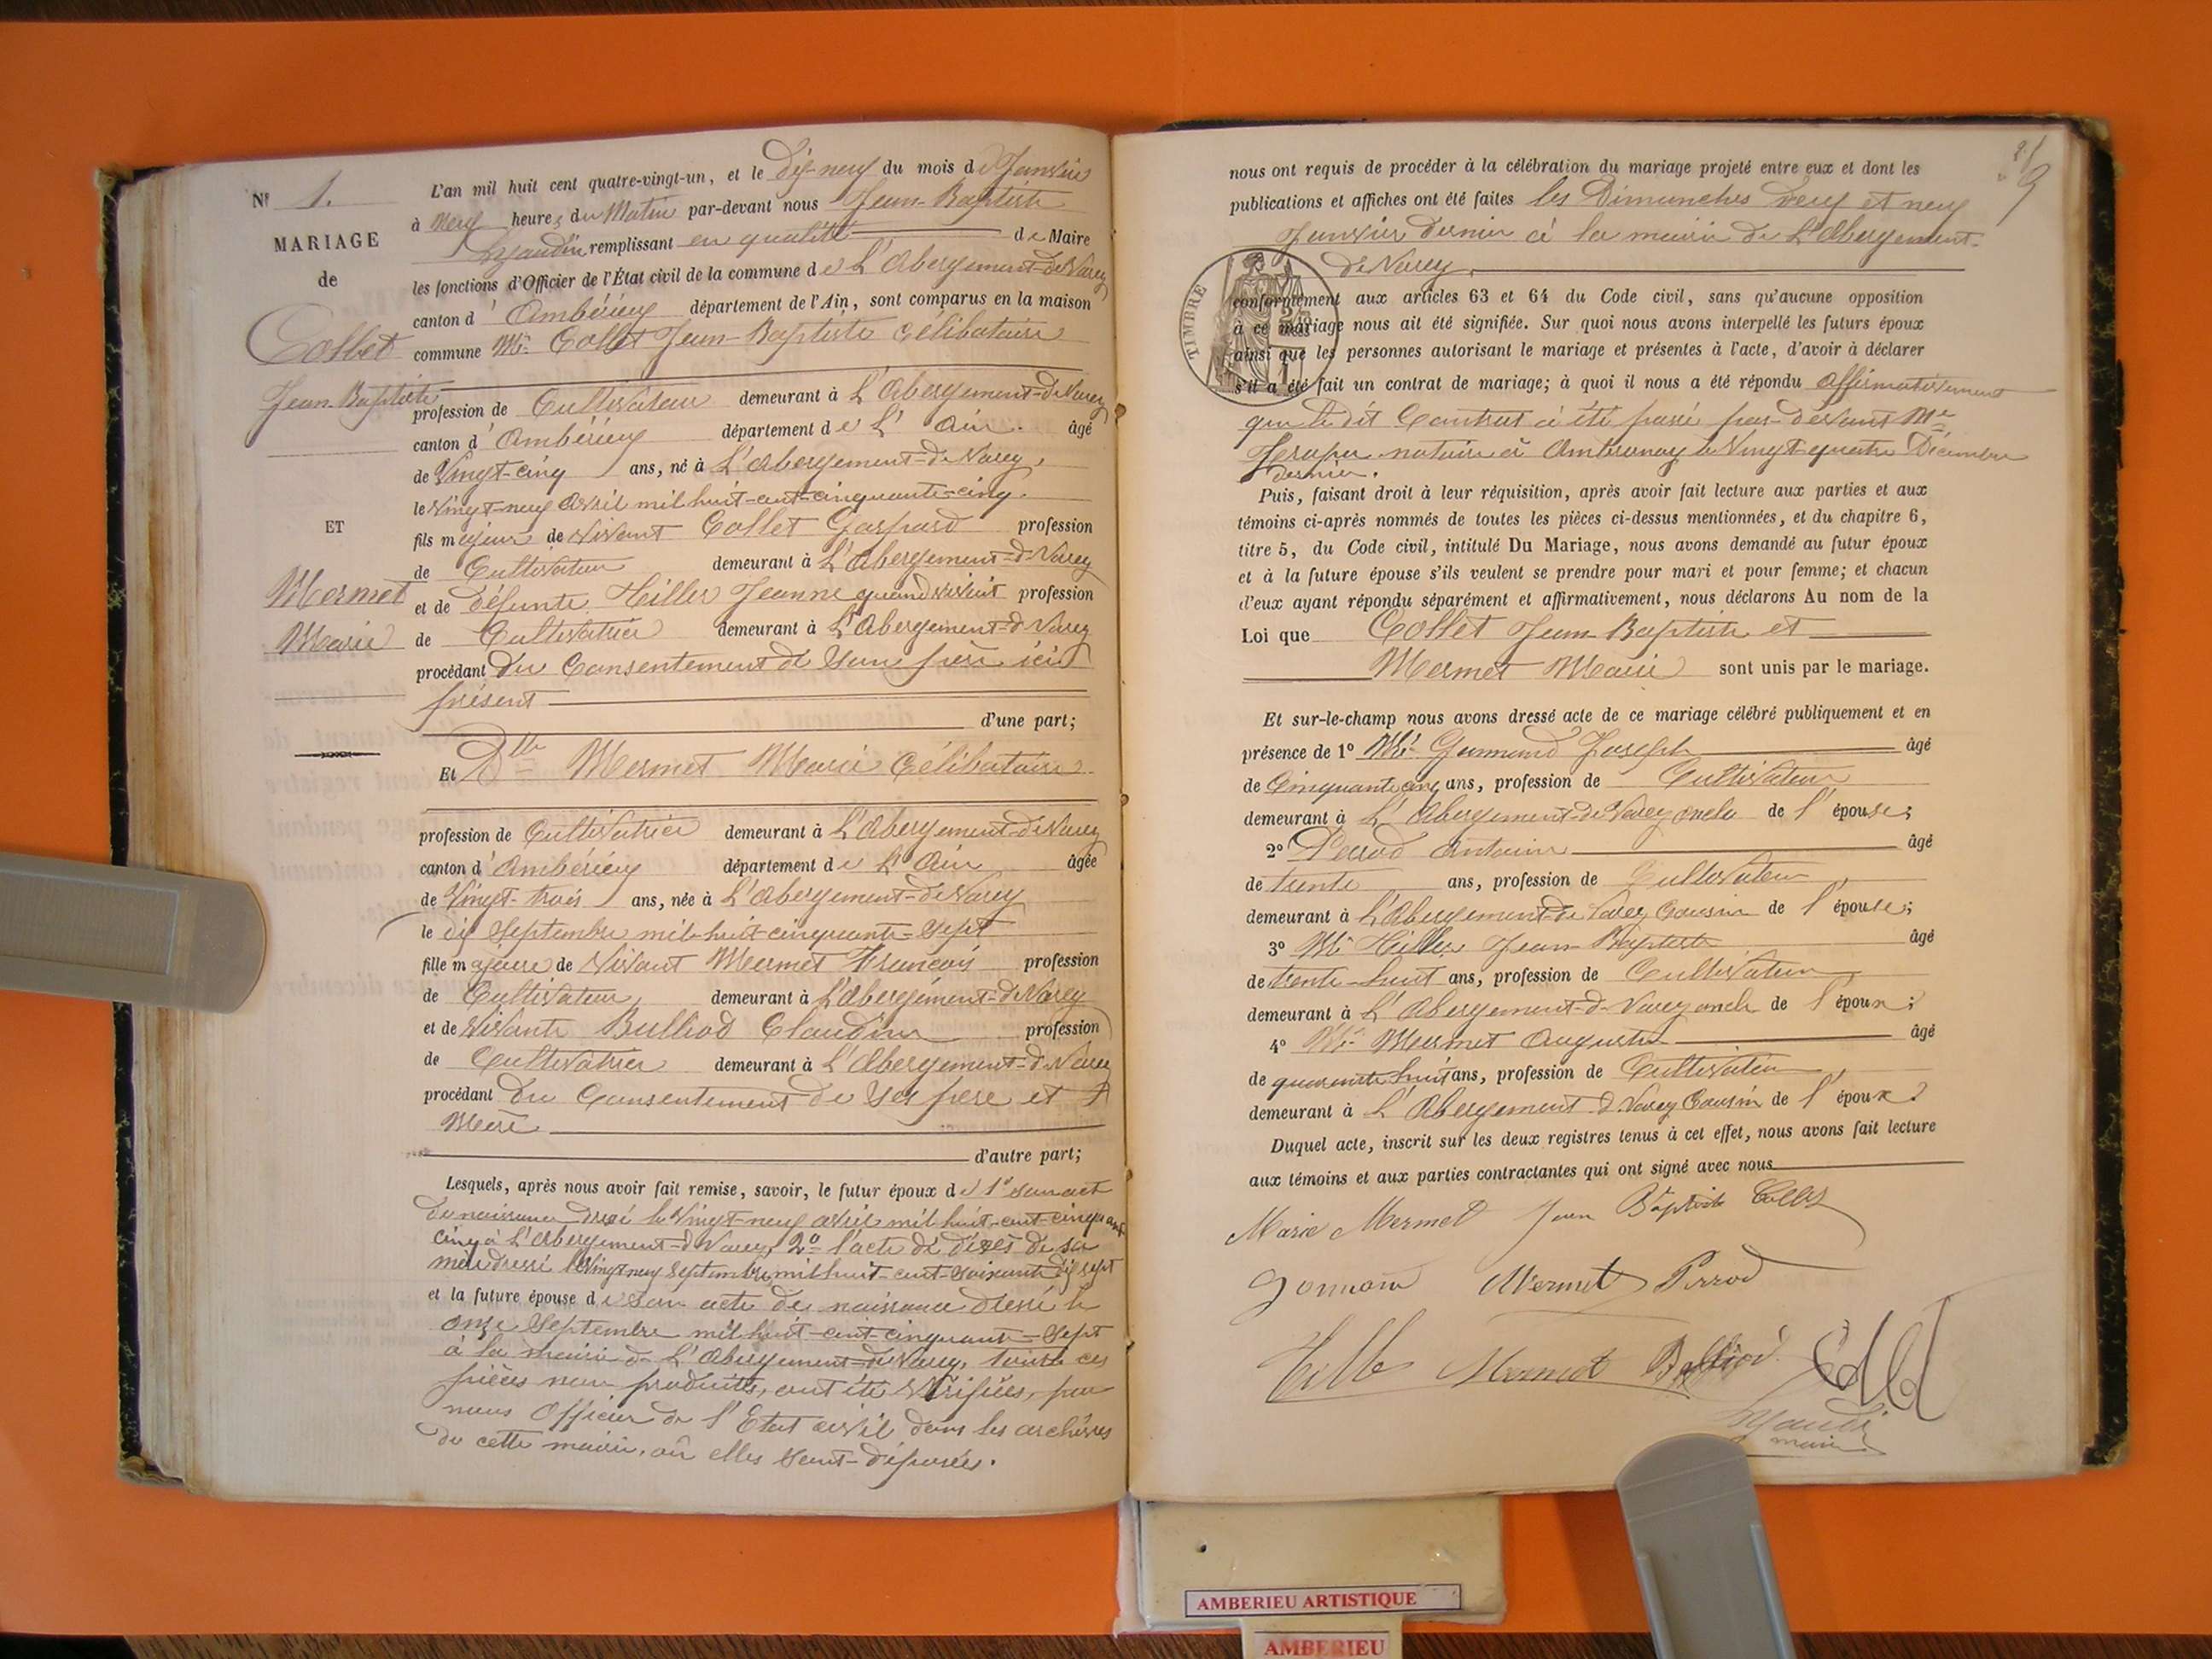 Nº 1.
MARIAGE
de
Collet
Jean-Baptiste
ET
Mermet
Marie
L'an mil huit cent quatre-vingt-un, et le dix-neuf du mois de Janvier
à neuf heures du Matin par-devant nous Jean-Baptiste
remplissant en qualité de Maire
les fonctions d'Officier de l'État civil de la commune de L'Abergement-de-Varey
canton d'Ambérieu département de l'Ain, sont comparus en la maison
commune Mr. Collet Jean-Baptiste Célibataire
profession de Cultivateur demeurant à L'Abergement-de-Varey
canton d'Ambérieu département de L'Ain. âgé
de Vingt-cinq ans, né à L'Abergement-de-Varey,
le vingt-neuf avril mil huit-cent-cinquante-cinq.
fils majeur de vivant Collet Gaspard profession
de Cultivateur demeurant à L'Abergement-de-Varey
et de défunte Hiller Jeanne quand vivait profession
de Cultivatrice demeurant à L'Abergement-de-Varey
procédant du Consentement de Son père ici
présent
d'une part;
Et Dlle Mermet Marie Célibataire
profession de Cultivatrice demeurant à L'Abergement-de-Varey
canton d'Ambérieu département de L'Ain âgée
de Vingt-trois ans, née à L'Abergement-de-Varey
le dix Septembre mil-huit-cinquante-Sept
fille majeure de Vivant Mermet François profession
de Cultivateur, demeurant à L'Abergement-de-Varey
et de vivante Bulliod Claudine profession
de Cultivatrice demeurant à L'Abergement-de-Varey
procédant du Consentement de Ses père et
Mère
d'autre part;
Lesquels, après nous avoir fait remise, savoir, le futur époux de 1º Son acte
de naissance dressé le Vingt-neuf avril mil huit-cent-cinquante
cinq à L'Abergement-de-Varey, 2º l'acte de décès de sa
mère dressé le Vingt neuf Septembre mil huit-cent-soixante dix sept
et la future épouse de Son acte de naissance dressé le
onze Septembre mil huit-cent-cinquante-Sept
à la mairie de L'Abergement-de-Varey, toutes ces
pièces non produites, ont été vérifiées, par
nous Officier de l'Etat civil dans les archives
de cette mairie, où elles Sont-déposées.
nous ont requis de procéder à la célébration du mariage projeté entre eux et dont les
publications et affiches ont été faites les Dimanches deux et neuf
Janvier dernier à la mairie de L'Abergement-
de Varey,
TIMBRE
conformément aux articles 63 et 64 du Code civil, sans qu'aucune opposition
à ce mariage nous ait été signifiée. Sur quoi nous avons interpellé les futurs époux
ainsi que les personnes autorisant le mariage et présentes à l'acte, d'avoir à déclarer
s'il a été fait un contrat de mariage; à quoi il nous a été répondu affirmativement
que le dit Contrat à été passé par-devant Me
notaire à Ambronay le Vingt-quatre Décembre
dernier.
Puis, faisant droit à leur réquisition, après avoir fait lecture aux parties et aux
témoins ci-après nommés de toutes les pièces ci-dessus mentionnées, et du chapitre 6,
titre 5, du Code civil, intitulé Du Mariage, nous avons demandé au futur époux
et à la future épouse s'ils veulent se prendre pour mari et pour femme; et chacun
d'eux ayant répondu séparément et affirmativement, nous déclarons Au nom de la
Loi que Collet Jean-Baptiste et
Mermet Marie sont unis par le mariage.
Et sur-le-champ nous avons dressé acte de ce mariage célébré publiquement et en
présence de 1º Mr. Joseph âgé
de Cinquante cinq ans, profession de Cultivateur
demeurant à L'Abergement-de-Varey oncle de l'épouse;
2º Perrod Antoine âgé
de trente ans, profession de Cultivateur,
demeurant à L'Abergement-de Varey Cousin de l'épouse;
3º Mr Hiller Jean Baptiste âgé
de trente-huit ans, profession de Cultivateur,
demeurant à L'Abergement-de-Varey oncle de l'époux;
4º Mr. Mermet Auguste âgé
de quarante huit ans, profession de Cultivateur,
demeurant à L'Abergement de Varey Cousin de l'époux.
Duquel acte, inscrit sur les deux registres tenus à cet effet, nous avons fait lecture
aux témoins et aux parties contractantes qui ont signé avec nous
Marie Mermet Jean Baptiste Collet
Mermet Perrod
Mermet
maire
AMBERIEU ARTISTIQUE
AMBERIEU